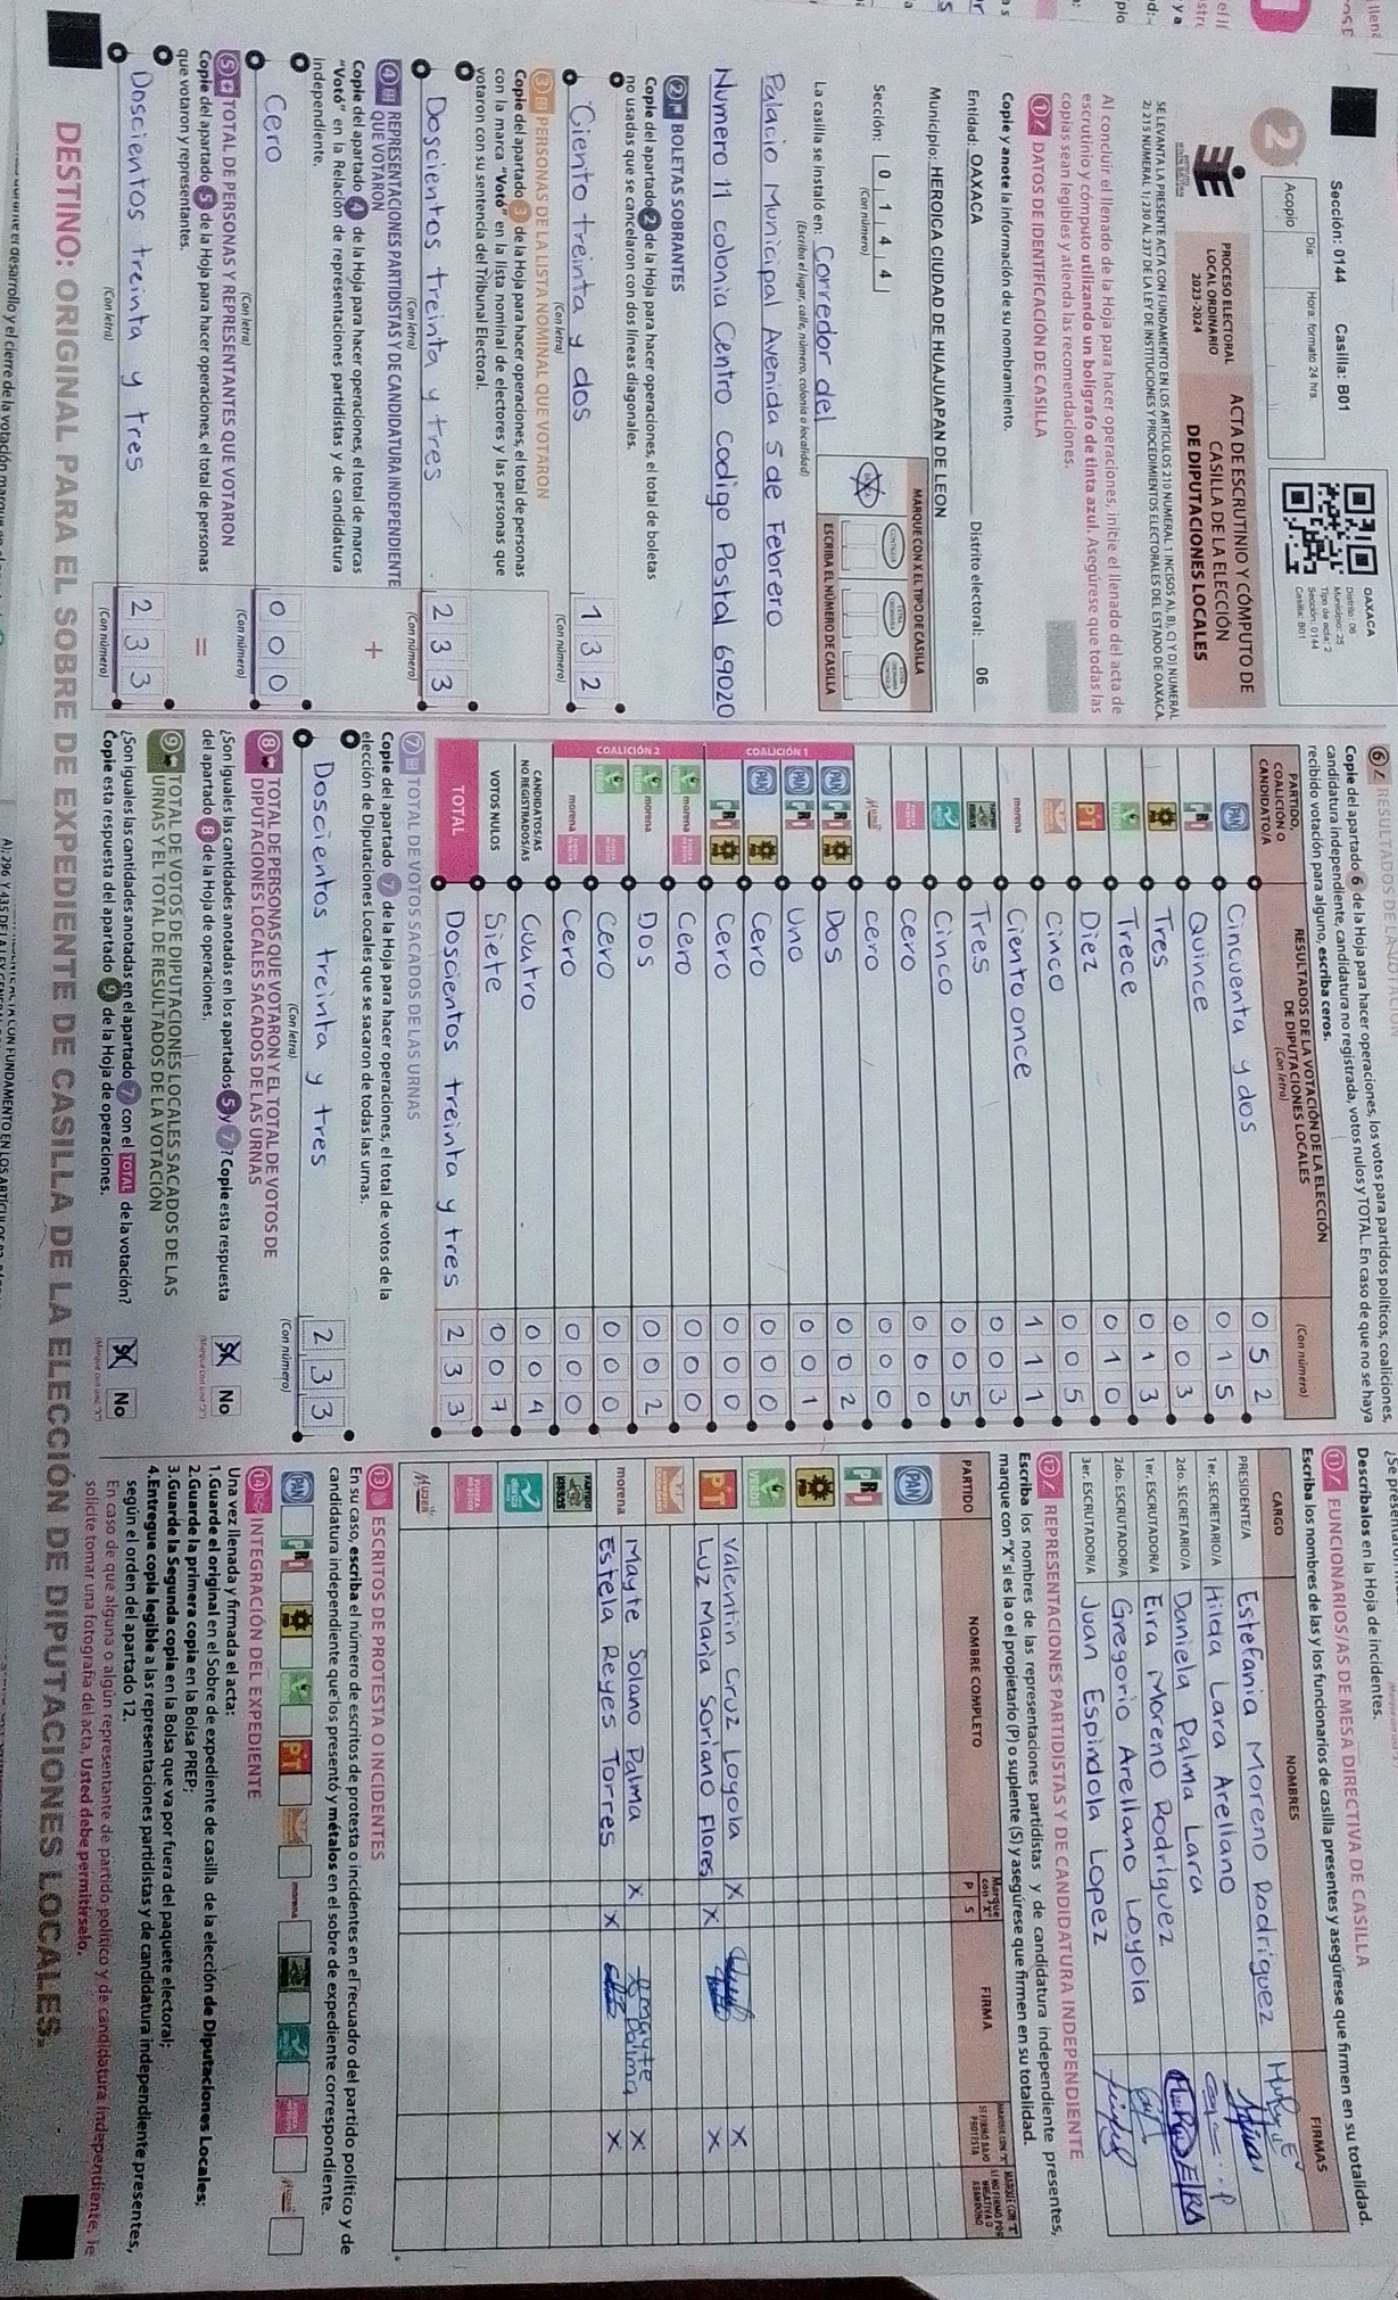 Sección: 0144 Casilla: B01
OAXACA
Distrito: 06
Municipio: 25
Tipo de acta: 2
Sección: 0144
Casilla: B01
2
Acopio
Día:
Hora: formato 24 hrs.
PROCESO ELECTORAL
LOCAL ORDINARIO
2023-2024
ACTA DE ESCRUTINIO Y CÓMPUTO DE
CASILLA DE LA ELECCIÓN
DE DIPUTACIONES LOCALES
SE LEVANTA LA PRESENTE ACTA CON FUNDAMENTO EN LOS ARTÍCULOS 210 NUMERAL 1 INCISOS A), B), C) Y D) NUMERAL
2; 215 NUMERAL 1; 230 AL 237 DE LA LEY DE INSTITUCIONES Y PROCEDIMIENTOS ELECTORALES DEL ESTADO DE OAXACA.
Al concluir el llenado de la Hoja para hacer operaciones, inicie el llenado del acta de
escrutinio y cómputo utilizando un bolígrafo de tinta azul. Asegúrese que todas las
copias sean legibles y atienda las recomendaciones.
1 DATOS DE IDENTIFICACIÓN DE CASILLA
Copie y anote la información de su nombramiento.
Entidad: OAXACA Distrito electoral: 06
Municipio: HEROICA CIUDAD DE HUAJUAPAN DE LEON
Sección: 0 1 4 4
(Con número)
MARQUE CON X EL TIPO DE CASILLA
ESCRIBA EL NÚMERO DE CASILLA
La casilla se instaló en: Corredor del
(Escriba el lugar, calle, número, colonia o localidad)
Palacio Municipal Avenida 5 de Febrero
Numero 11 colonia Centro Codigo Postal 69020
2 BOLETAS SOBRANTES
Copie del apartado 2 de la Hoja para hacer operaciones, el total de boletas
no usadas que se cancelaron con dos líneas diagonales.
Ciento treinta y dos 1 3 2
(Con letra) (Con número)
3 PERSONAS DE LA LISTA NOMINAL QUE VOTARON
Copie del apartado 3 de la Hoja para hacer operaciones, el total de personas
con la marca "Votó" en la lista nominal de electores y las personas que
votaron con su sentencia del Tribunal Electoral.
Doscientos treinta y tres 2 3 3
(Con letra) (Con número)
4 REPRESENTACIONES PARTIDISTAS Y DE CANDIDATURA INDEPENDIENTE
QUE VOTARON
+
Copie del apartado 4 de la Hoja para hacer operaciones, el total de marcas
"Votó" en la Relación de representaciones partidistas y de candidatura
independiente.
Cero 0 0 0
(Con letra) (Con número)
5 TOTAL DE PERSONAS Y REPRESENTANTES QUE VOTARON
=
Copie del apartado 5 de la Hoja para hacer operaciones, el total de personas
que votaron y representantes.
Doscientos treinta y tres 2 3 3
(Con letra) (Con número)
6 RESULTADOS DE LA VOTACIÓN
Copie del apartado 6 de la Hoja para hacer operaciones, los votos para partidos políticos, coaliciones,
candidatura independiente, candidatura no registrada, votos nulos y TOTAL. En caso de que no se haya
recibido votación para alguno, escriba ceros.
PARTIDO,
COALICIÓN O
CANDIDATO/A
RESULTADOS DE LA VOTACIÓN DE LA ELECCIÓN
DE DIPUTACIONES LOCALES
(Con letra)
(Con número)
PAN Cincuenta y dos 0 5 2
PRI Quince 0 1 5
PRD Tres 0 0 3
VERDE Trece 0 1 3
PT Diez 0 1 0
Cinco 0 0 5
morena Ciento once 1 1 1
Tres 0 0 3
Cinco 0 0 5
Cero 0 0 0
Mujer Cero 0 0 0
COALICIÓN 1
PAN PRI PRD Dos 0 0 2
PAN PRI Uno 0 0 1
PAN PRD Cero 0 0 0
PRI PRD Cero 0 0 0
COALICIÓN 2
VERDE morena Cero 0 0 0
VERDE morena Dos 0 0 2
VERDE Cero 0 0 0
morena Cero 0 0 0
CANDIDATOS/AS
NO REGISTRADOS/AS
Cuatro 0 0 4
VOTOS NULOS Siete 0 0 7
TOTAL Doscientos treinta y tres 2 3 3
7 TOTAL DE VOTOS SACADOS DE LAS URNAS
Copie del apartado 7 de la Hoja para hacer operaciones, el total de votos de la
elección de Diputaciones Locales que se sacaron de todas las urnas.
Doscientos treinta y tres 2 3 3
(Con letra) (Con número)
8 TOTAL DE PERSONAS QUE VOTARON Y EL TOTAL DE VOTOS DE
DIPUTACIONES LOCALES SACADOS DE LAS URNAS
¿Son iguales las cantidades anotadas en los apartados 5 y 7? Copie esta respuesta
del apartado 8 de la Hoja de operaciones.
Sí No
(Marque con una "X")
9 TOTAL DE VOTOS DE DIPUTACIONES LOCALES SACADOS DE LAS
URNAS Y EL TOTAL DE RESULTADOS DE LA VOTACIÓN
¿Son iguales las cantidades anotadas en el apartado 7 con el TOTAL de la votación?
Copie esta respuesta del apartado 9 de la Hoja de operaciones.
Sí No
(Marque con una "X")
Descríbalos en la Hoja de incidentes.
11 FUNCIONARIOS/AS DE MESA DIRECTIVA DE CASILLA
Escriba los nombres de las y los funcionarios de casilla presentes y asegúrese que firmen en su totalidad.
CARGO NOMBRES FIRMAS
PRESIDENTE/A Estefania Moreno Rodriguez
1er. SECRETARIO/A Hilda Lara Arellano
2do. SECRETARIO/A Daniela Palma Lara
1er. ESCRUTADOR/A Eira Moreno Rodriguez
2do. ESCRUTADOR/A Gregorio Arellano Loyola
3er. ESCRUTADOR/A Juan Espindola Lopez
12 REPRESENTACIONES PARTIDISTAS Y DE CANDIDATURA INDEPENDIENTE
Escriba los nombres de las representaciones partidistas y de candidatura independiente presentes,
marque con "X" si es la o el propietario (P) o suplente (S) y asegúrese que firmen en su totalidad.
PARTIDO NOMBRE COMPLETO
Marque con "X"
P S
FIRMA
PAN
PRI
PRD
VERDE
PT Valentin Cruz Loyola X X
Luz Maria Soriano Flores X X
morena Mayte Solano Palma X mayte palma X
Estela Reyes Torres X X
Mujer
13 ESCRITOS DE PROTESTA O INCIDENTES
En su caso, escriba el número de escritos de protesta o incidentes en el recuadro del partido político y de
candidatura independiente que los presentó y métalos en el sobre de expediente correspondiente.
PAN PRI PRD VERDE PT morena Mujer
14 INTEGRACIÓN DEL EXPEDIENTE
Una vez llenada y firmada el acta:
1.Guarde el original en el Sobre de expediente de casilla de la elección de Diputaciones Locales;
2.Guarde la primera copia en la Bolsa PREP;
3.Guarde la Segunda copia en la Bolsa que va por fuera del paquete electoral;
4.Entregue copia legible a las representaciones partidistas y de candidatura independiente presentes,
según el orden del apartado 12.
En caso de que alguna o algún representante de partido político y de candidatura independiente, le
solicite tomar una fotografía del acta, Usted debe permitírselo.
DESTINO: ORIGINAL PARA EL SOBRE DE EXPEDIENTE DE CASILLA DE LA ELECCIÓN DE DIPUTACIONES LOCALES.